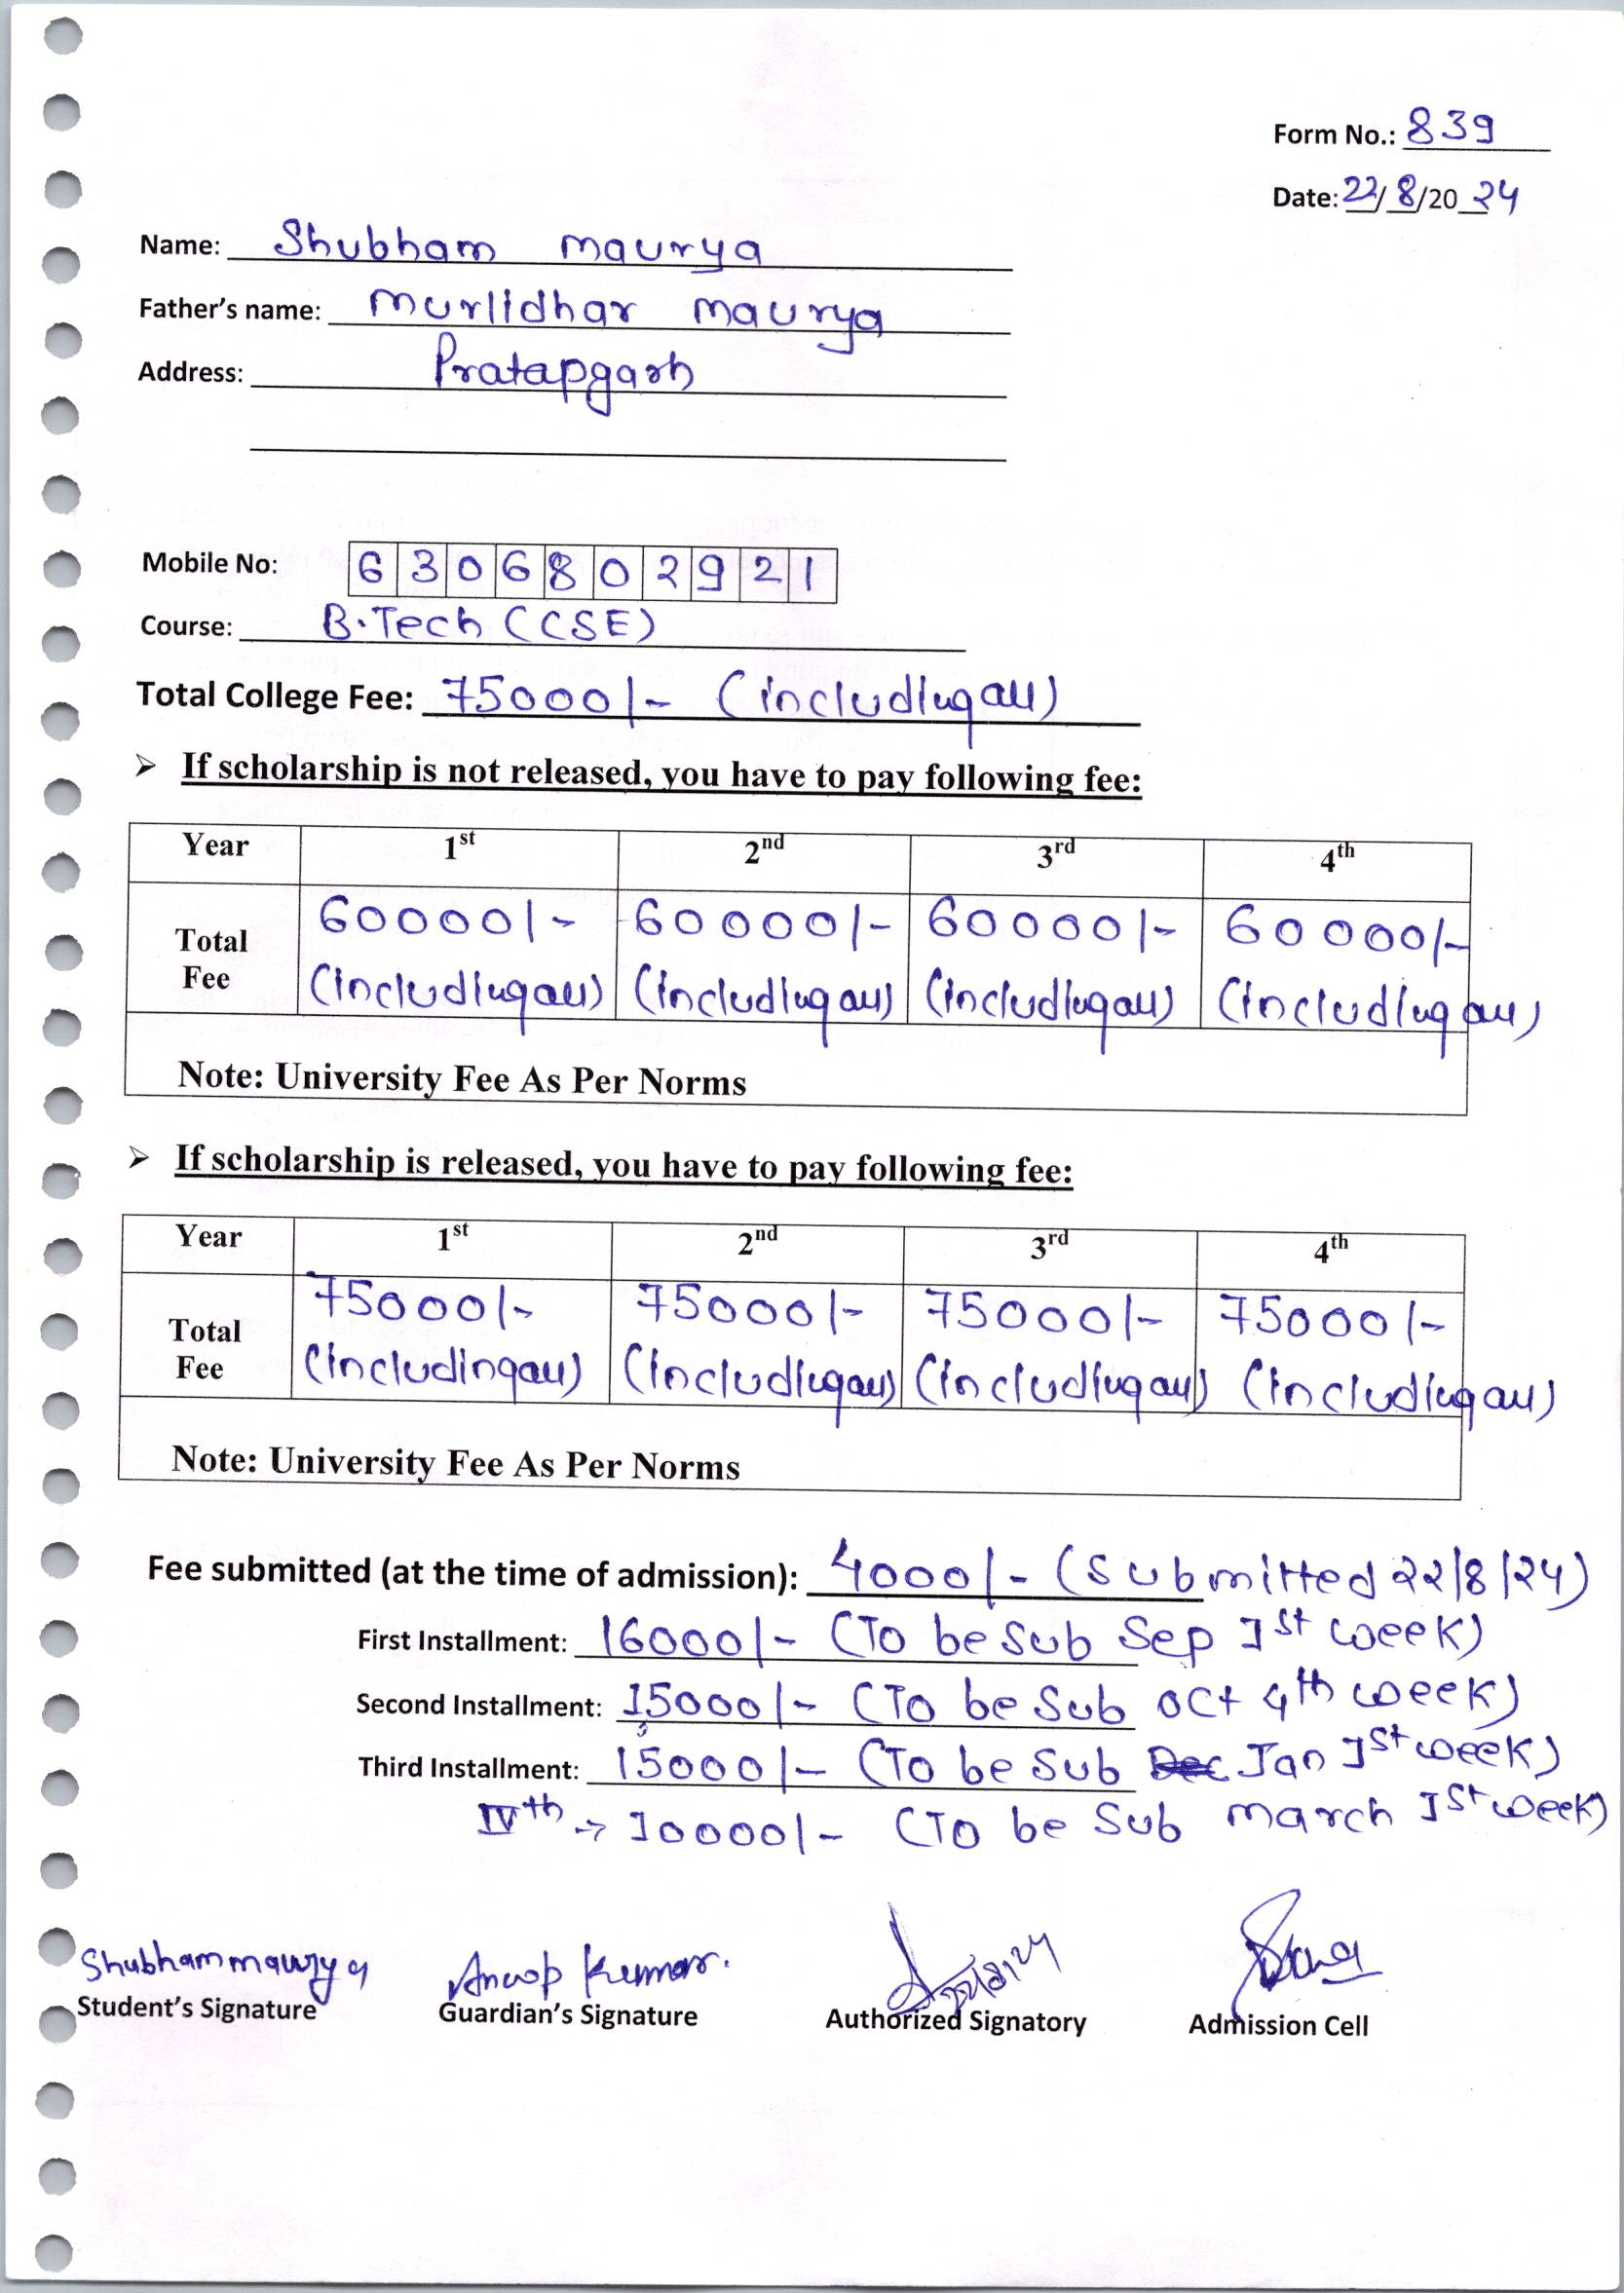 Form No.: 839
Date: 22/8/2024
Name: Shubham Maurya
Father's name: Murlidhar Maurya
Address: Pratapgarh
Mobile No: 6306802921
Course: B.Tech (CSE)
Total College Fee: 75000/- (including all)
➢ If scholarship is not released, you have to pay following fee:
Year 1st 2nd 3rd 4th
Total Fee 60000/- 60000/- 60000/- 60000/-
(including all) (including all) (including all) (including all)
Note: University Fee As Per Norms
➢ If scholarship is released, you have to pay following fee:
Year 1st 2nd 3rd 4th
Total Fee 75000/- 75000/- 75000/- 75000/-
(including all) (including all) (including all) (including all)
Note: University Fee As Per Norms
Fee submitted (at the time of admission): 4000/- (Submitted 22/8/24)
First Installment: 16000/- (To be Sub Sep Ist week)
Second Installment: 15000/- (To be Sub Oct 4th week)
Third Installment: 15000/- (To be Sub Dec Jan Ist week)
IVth → 10000/- (To be Sub March Ist week)
Shubham maurya Anoop Kumar.
Student's Signature Guardian's Signature Authorized Signatory Admission Cell